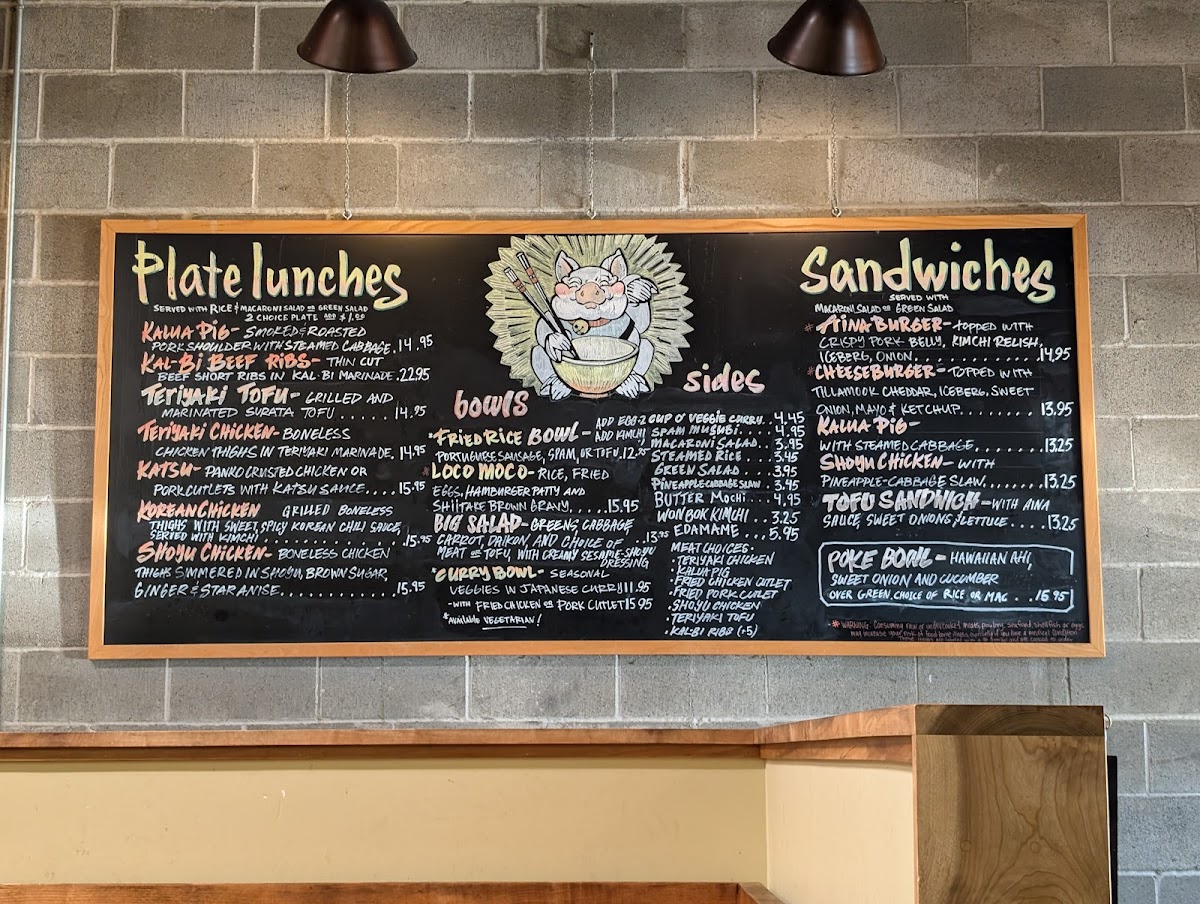 Plate lunches
SERVED WITH RICE & MACARONI SALAD OR GREEN SALAD
2 CHOICE PLATE ADD $1.00
KALUA PIG- SMOKED & ROASTED
PORK SHOULDER WITH STEAMED CABBAGE. 14.95
KAL-BI BEEF RIBS- THIN CUT
BEEF SHORT RIBS IN KAL-BI MARINADE. 22.95
TERIYAKI TOFU- GRILLED AND
MARINATED SURATA TOFU ...... 14.95
TERIYAKI CHICKEN- BONELESS
CHICKEN THIGHS IN TERIYAKI MARINADE. 14.95
KATSU- PANKO CRUSTED CHICKEN OR
PORK CUTLETS WITH KATSU SAUCE.... 15.95
KOREAN CHICKEN GRILLED BONELESS
THIGHS WITH SWEET, SPICY KOREAN CHILI SAUCE,
SERVED WITH KIMCHI ........ 15.95
SHOYU CHICKEN- BONELESS CHICKEN
THIGHS SIMMERED IN SHOYU, BROWN SUGAR,
GINGER & STAR ANISE............... 15.95
bowls
*FRIED RICE BOWL- ADD EGG-2
ADD KIMCHI
PORTUGUESE SAUSAGE, SPAM, OR TOFU. 12.95
*LOCO MOCO- RICE, FRIED
EGGS, HAMBURGER PATTY AND
SHIITAKE BROWN GRAVY...... 15.95
BIG SALAD- GREENS, CABBAGE
CARROT, DAIKON, AND CHOICE OF .. 13.95
MEAT OR TOFU, WITH CREAMY SESAME-SHOYU
DRESSING
*CURRY BOWL- SEASONAL
VEGGIES IN JAPANESE CURRY 11.95
-WITH FRIED CHICKEN OR PORK CUTLET 15.95
*AVAILABLE VEGETARIAN!
sides
CUP O' VEGGIE CURRY.. 4.45
SPAM MUSUBI.. 4.95
MACARONI SALAD.. 3.95
STEAMED RICE .. 3.45
GREEN SALAD .. 3.95
PINEAPPLE CABBAGE SLAW.. 3.45
BUTTER MOCHI .. 4.95
WON BOK KIMCHI .. 3.25
EDAMAME... 5.95
MEAT CHOICES-
• TERIYAKI CHICKEN
• KALUA PIG
• FRIED CHICKEN CUTLET
• FRIED PORK CUTLET
• SHOYU CHICKEN
• TERIYAKI TOFU
• KAL-BI RIBS (+5)
Sandwiches
SERVED WITH
MACARONI SALAD OR GREEN SALAD
*AINA BURGER- TOPPED WITH
CRISPY PORK BELLY, KIMCHI RELISH,
ICEBERG, ONION............... 14.95
*CHEESEBURGER- TOPPED WITH
TILLAMOOK CHEDDAR, ICEBERG, SWEET
ONION, MAYO & KETCHUP......... 13.95
KALUA PIG-
WITH STEAMED CABBAGE.......... 13.25
SHOYU CHICKEN- WITH
PINEAPPLE-CABBAGE SLAW........ 13.25
TOFU SANDWICH- WITH AINA
SAUCE, SWEET ONIONS, LETTUCE.... 13.25
POKE BOWL- HAWAIIAN AHI,
SWEET ONION AND CUCUMBER
OVER GREEN, CHOICE OF RICE OR MAC . .. 15.95
*WARNING: Consuming raw or undercooked meats, poultry, seafood, shellfish or eggs
may increase your risk of food borne illness, especially if you have a medical condition.